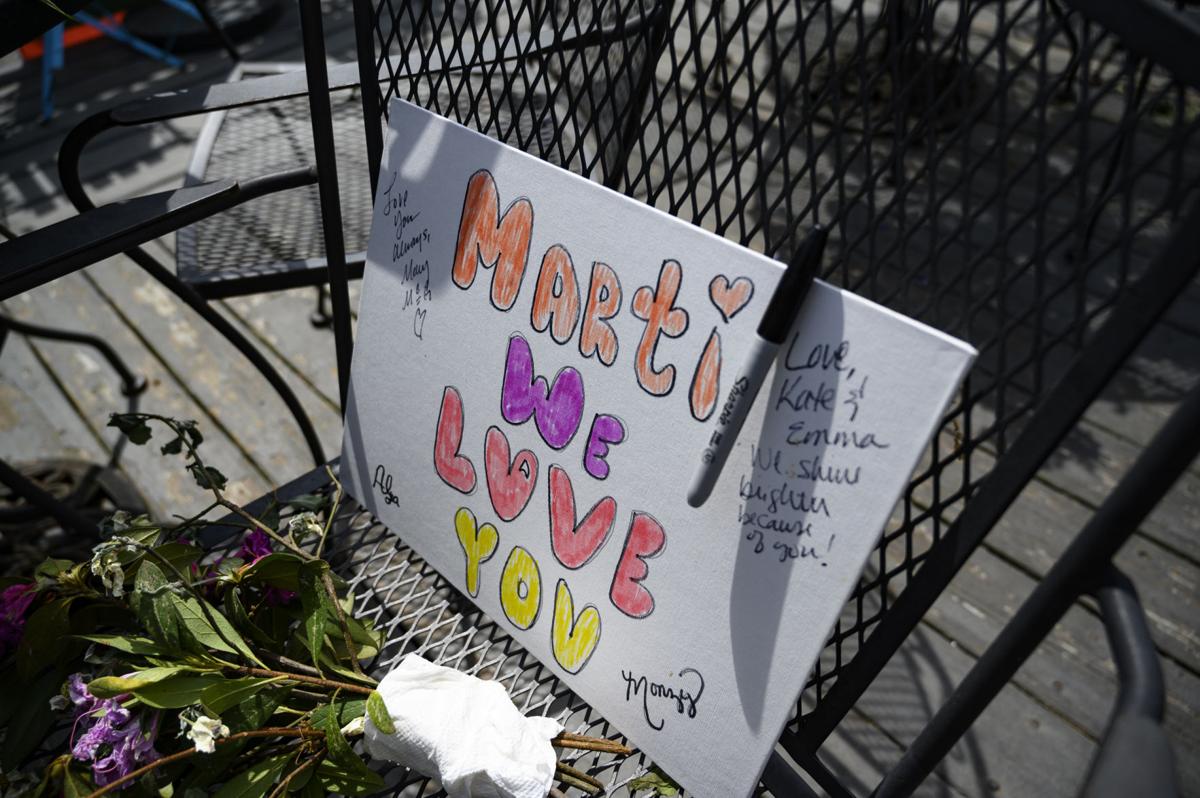 Love
you
always,
Mary
MARTi
WE
LOVE
YOU
Sharpie
Love,
Kate &
Emma
We shine
brighter
because
of you!